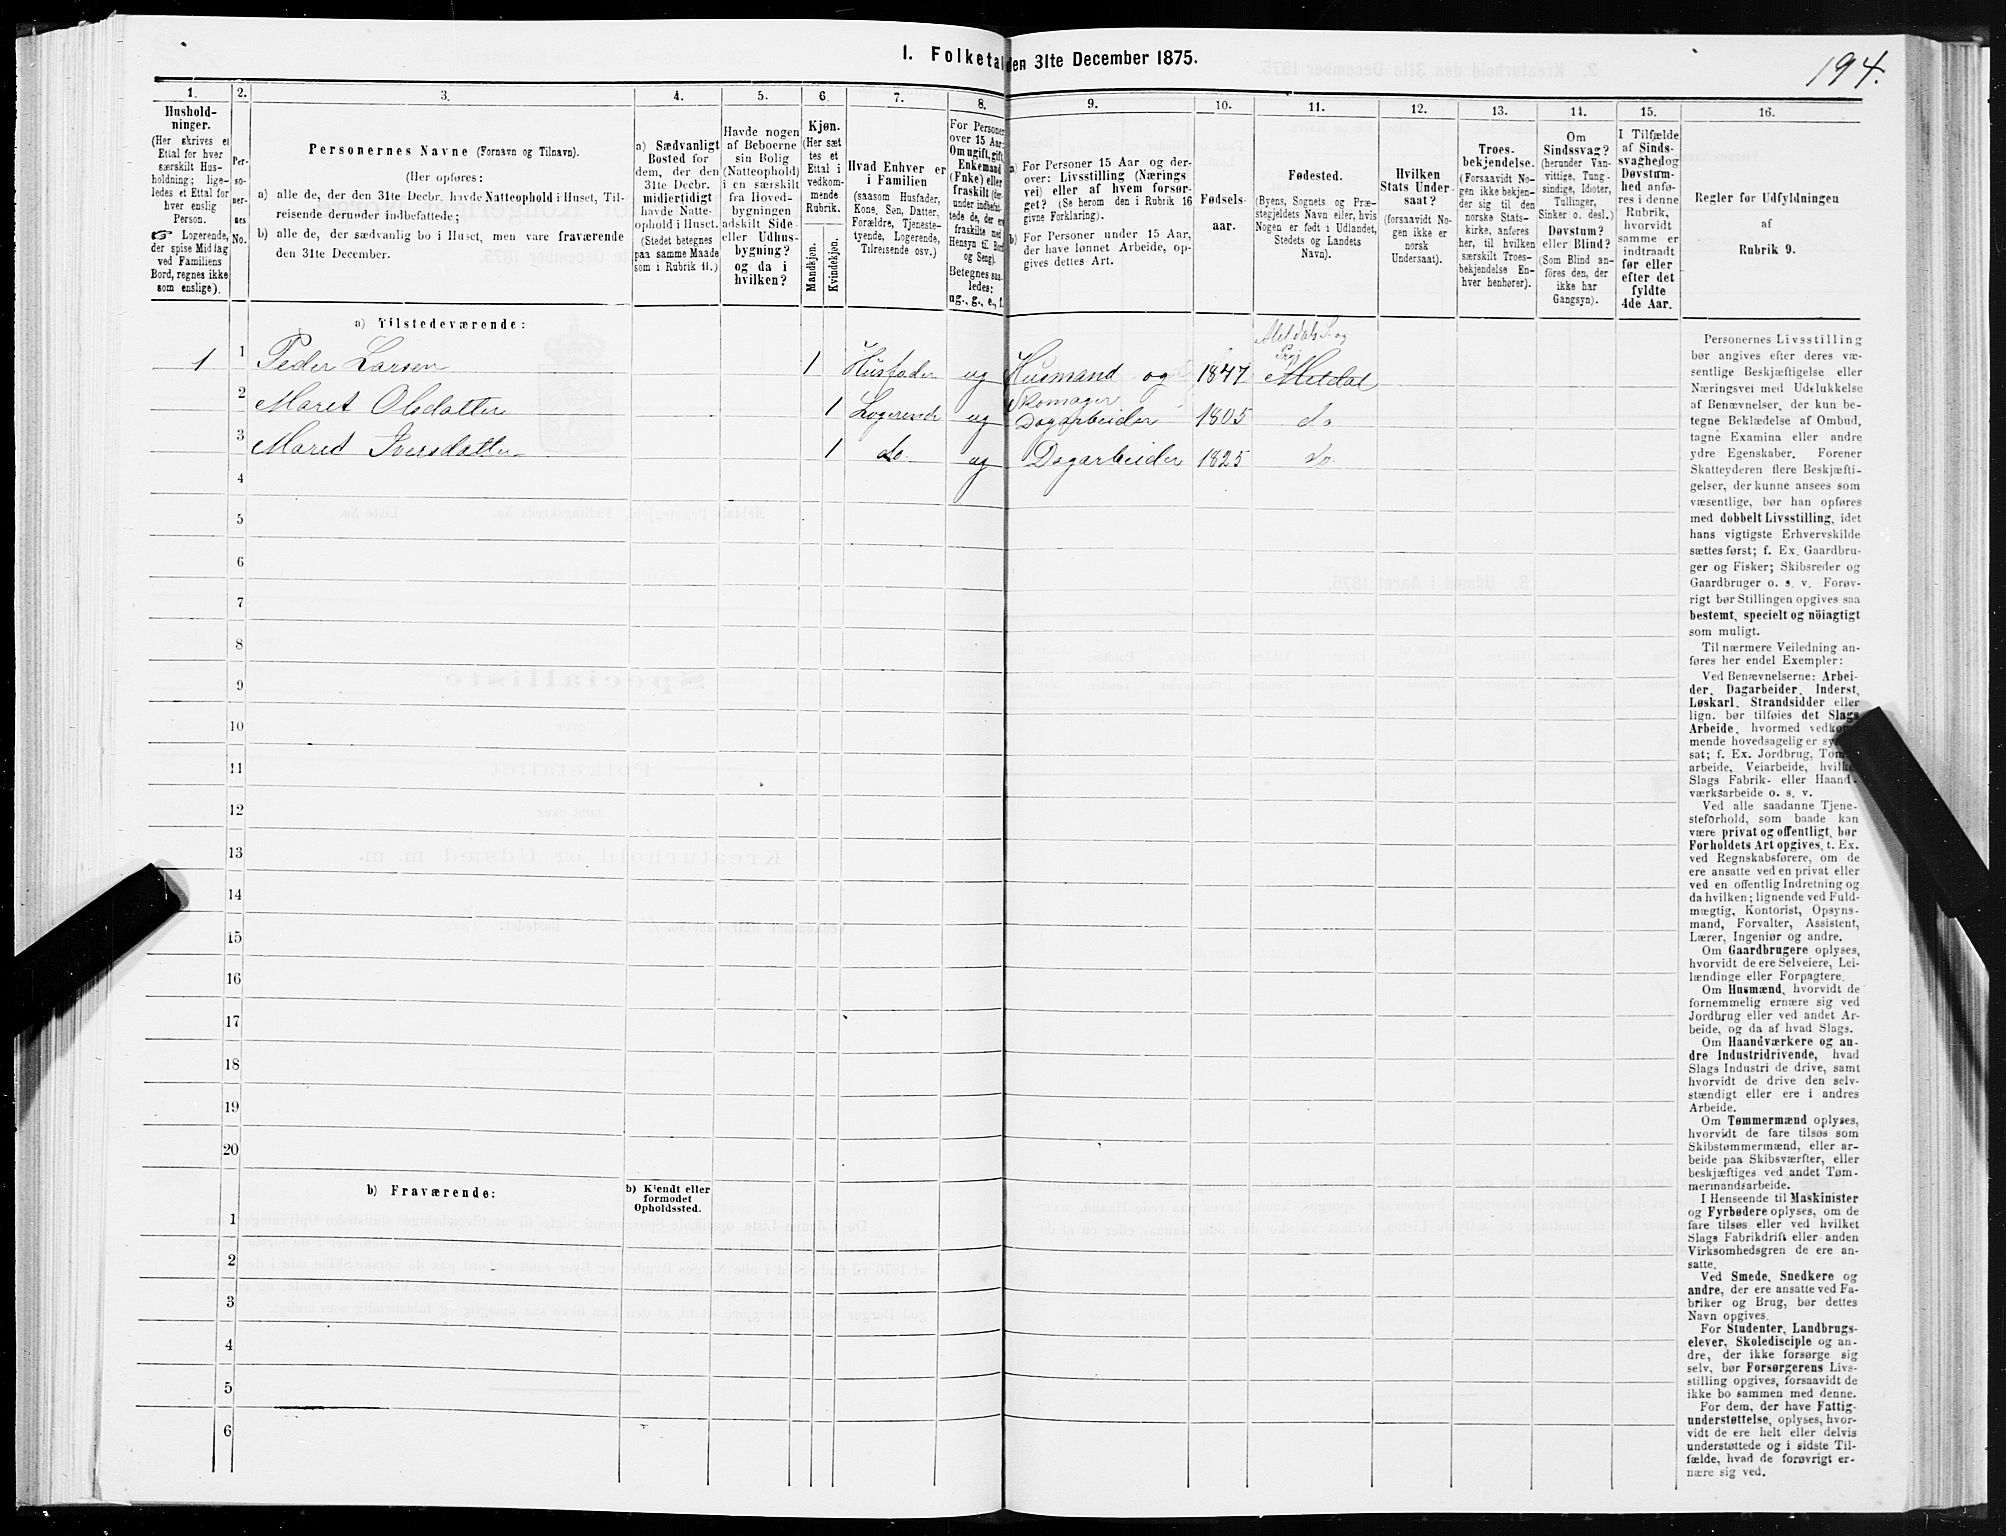 I. Folketal den 31te December 1875.
194.
1.
Hushold-
ninger.
(Her skrives et
Ettal for hver
særskilt Hus-
holdning; lige-
ledes et Ettal for
hver enslig
Person.
☞ Logerende,
der spise Middag
ved Familiens
Bord, regnes ikke
som enslige).
2.
Per-
so-
ner-
nes
No.
3.
Personernes Navne (Fornavn og Tilnavn).
(Her opføres:
a) alle de, der den 31te Decbr. havde Natteophold i Huset, Til-
reisende derunder indbefattede;
b) alle de, der sædvanlig bo i Huset, men vare fraværende
den 31te December.
4.
a) Sædvanligt
Bosted for
dem, der den
31te Decbr.
midlertidigt
havde Natte-
ophold i Huset.
(Stedet betegnes
paa samme Maade
som i Rubrik 11.)
5.
Havde nogen
af Beboerne
sin Bolig
(Natteophold)
i en særskilt
fra Hoved-
bygningen
adskilt Side-
eller Udhus-
bygning?
og da i
hvilken?
6.
Kjøn.
(Her sæt
tes et
Ettal i
vedkom-
mende
Rubrik.
Mandkjøn.
Kvindekjøn.
7.
Hvad Enhver er
i Familien
(saasom Husfader,
Kone, Søn, Datter,
Forældre, Tjeneste-
tyende, Logerende,
Tilreisende osv.)
8.
For Personer
over 15 Aar:
Om ugift, gift,
Enkemand
(Enke) eller
fraskilt (der-
under indbefat-
tede de, der ere
fraskilte med
Hensyn til Bord
og Seng).
Betegnes saa-
ledes:
ug., g., e., f.
9.
a) For Personer 15 Aar og der-
over: Livsstilling (Nærings
vei) eller af hvem forsør-
get? (Se herom den i Rubrik 16
givne Forklaring).
b) For Personer under 15 Aar,
der have lønnet Arbeide, op-
gives dettes Art.
10.
Fødsels-
aar.
11.
Fødested.
(Byens, Sognets og Præ-
stegjeldets Navn eller, hvis
Nogen er født i Udlandet,
Stedets og Landets
Navn).
12.
Hvilken
Stats Under-
saat?
(forsaavidt No-
gen ikke er
norsk
Undersaat).
13.
Troes-
bekjendelse.
(Forsaavidt No-
gen ikke bekjen-
der sig til den
norske Stats-
kirke, anføres
her, til hvilken
særskilt Troes-
bekjendelse En-
hver henhører).
14.
Om
Sindssvag?
(herunder Van-
vittige, Tung-
sindige, Idioter,
Tullinger,
Sinker o. desl.)
Døvstum?
eller Blind?
(Som Blind an-
føres den, der
ikke har
Gangsyn).
15.
I Tilfælde
af Sinds-
svaghed og
Døvstum-
hed anfø-
res i denne
Rubrik,
hvorvidt
samme er
indtraadt
før eller
efter det
fyldte
4de Aar.
16.
Regler for Udfyldningen
af
Rubrik 9.
a) Tilstedeværende:
1 1 Peder Larsen 1 Husfader ug Husmand og Skomager 1847 Meldals S. og Prgj Meldal
2 Maret Olsdatter 1 Logerende ug Dagarbeider 1805 do
3 Marit Iversdatter 1 do. ug Dagarbeider 1825 do
4
5
6
7
8
9
10
11
12
13
14
15
16
17
18
19
20
b) Fraværende:
b) Kjendt eller
formodet
Opholdssted.
1
2
3
4
5
6
Personernes Livsstilling
bør angives efter deres væ-
sentlige Beskjæftigelse eller
Næringsvei med Udelukkelse
af Benævnelser, der kun be-
tegne Beklædelse af Ombud,
tagne Examina eller andre
ydre Egenskaber. Forener
Skatteyderen flere Beskjæfti-
gelser, der kunne ansees som
væsentlige, bør han opføres
med dobbelt Livsstilling, idet
hans vigtigste Erhvervskilde
sættes først; f. Ex. Gaardbru-
ger og Fisker; Skibsreder og
Gaardbruger o. s. v. Forøv-
rigt bør Stillingen opgives saa
bestemt, specielt og nöiagtigt
som muligt.
Til nærmere Veiledning an-
føres her endel Exempler:
Ved Benævnelserne: Arbei-
der, Dagarbeider, Inderst,
Løskarl, Strandsidder eller
lign. bør tilføies det Slags
Arbeide, hvormed vedkom-
mende hovedsagelig er syssel-
sat; f. Ex. Jordbrug, Tømmer-
arbeide, Veiarbeide, hvilket
Slags Fabrik- eller Haand-
værksarbeide o. s. v.
Ved alle saadanne Tjene-
steforhold, som baade kan
være privat og offentligt, bør
Forholdets Art opgives, t. Ex.
ved Regnskabsførere, om de
ere ansatte ved en privat eller
ved en offentlig Indretning og
da hvilken; lignende ved Fuld-
mægtig, Kontorist, Opsyns-
mand, Forvalter, Assistent,
Lærer, Ingeniør og andre.
Om Gaardbrugere oplyses,
hvorvidt de ere Selveiere, Lei-
lændinge eller Forpagtere.
Om Husmænd, hvorvidt de
fornemmelig ernære sig ved
Jordbrug eller ved andet Ar-
beide, og da af hvad Slags.
Om Haandværkere og an-
dre Industridrivende, hvad
Slags Industri de drive, samt
hvorvidt de drive den selv-
stændigt eller ere i andres
Arbeide.
Om Tømmermænd oplyses,
hvorvidt de fare tilsøs som
Skibstømmermænd, eller ar-
beide paa Skibsværfter, eller
beskjæftiges ved andet Tøm-
mermandsarbeide.
I Henseende til Maskinister
og Fyrbødere oplyses, om de
fare tilsøs eller ved hvilket
Slags Fabrikdrift eller anden
Virksomhedsgren de ere an-
satte.
Ved Smede, Snedkere og
andre, der ere ansatte ved Fa-
briker og Brug, bør dettes
Navn opgives.
For Studenter, Landbrugs-
elever, Skoledisciple og an-
dre, der ikke forsørge sig
selv, bør Forsørgerens Livs-
stilling opgives, forsaavidt de
ikke bo sammen med denne.
For dem, der have Fattig-
understøttelse, oplyses, hvor-
vidt de ere helt eller delvis
understøttede og i sidste Til-
fælde, hvad de forøvrigt er-
nære sig ved.